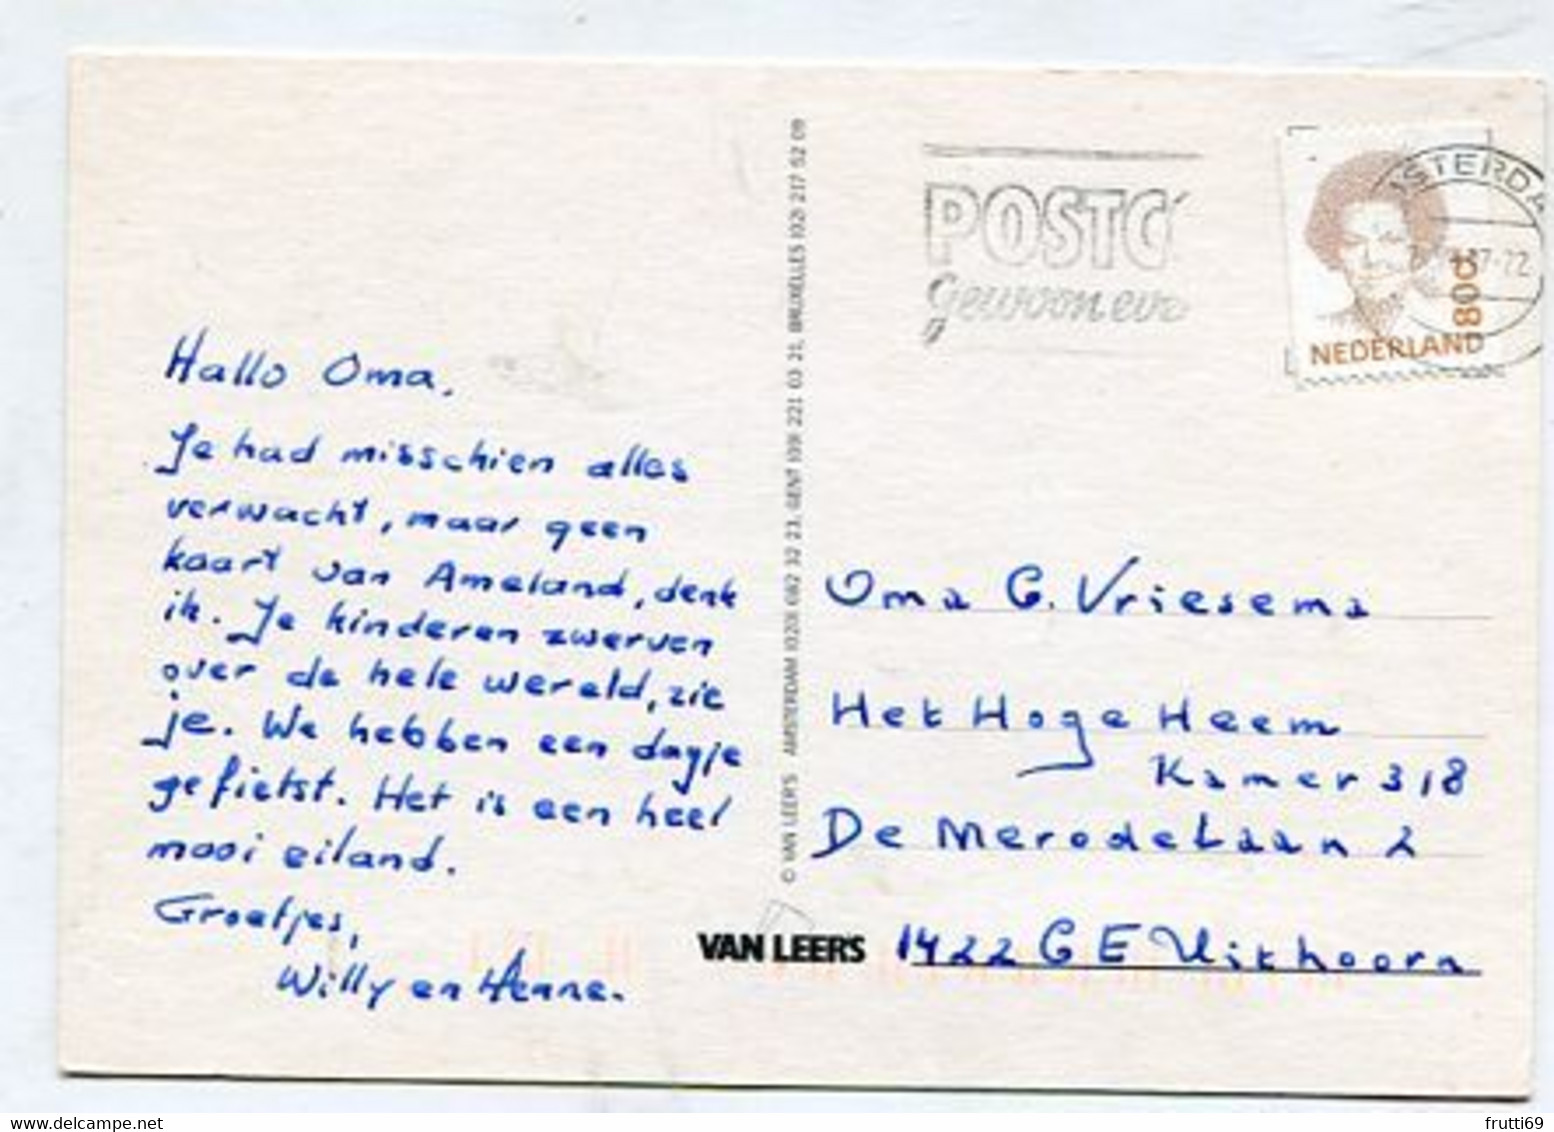 Hallo Oma.
Je had misschien alles
verwacht, maar geen
kaart van Ameland, denk
ik. Je kinderen zwerven
over de hele wereld, zie
je. We hebben een dagje
gefietst. Het is een heel
mooi eiland.
Groetjes,
Willy en Henne.
© VAN LEER'S AMSTERDAM (020) 682 32 23, GENT (09) 221 03 21, BRUXELLES (02) 217 52 09
VAN LEER'S
POSTC
Gewoon evo
STERDA
NEDERLAND
80c
Oma G. Vriesema
Het Hoge Heem
Kamer 318
De Merodelaan 2
1422 GE Uithoorn
frutti69